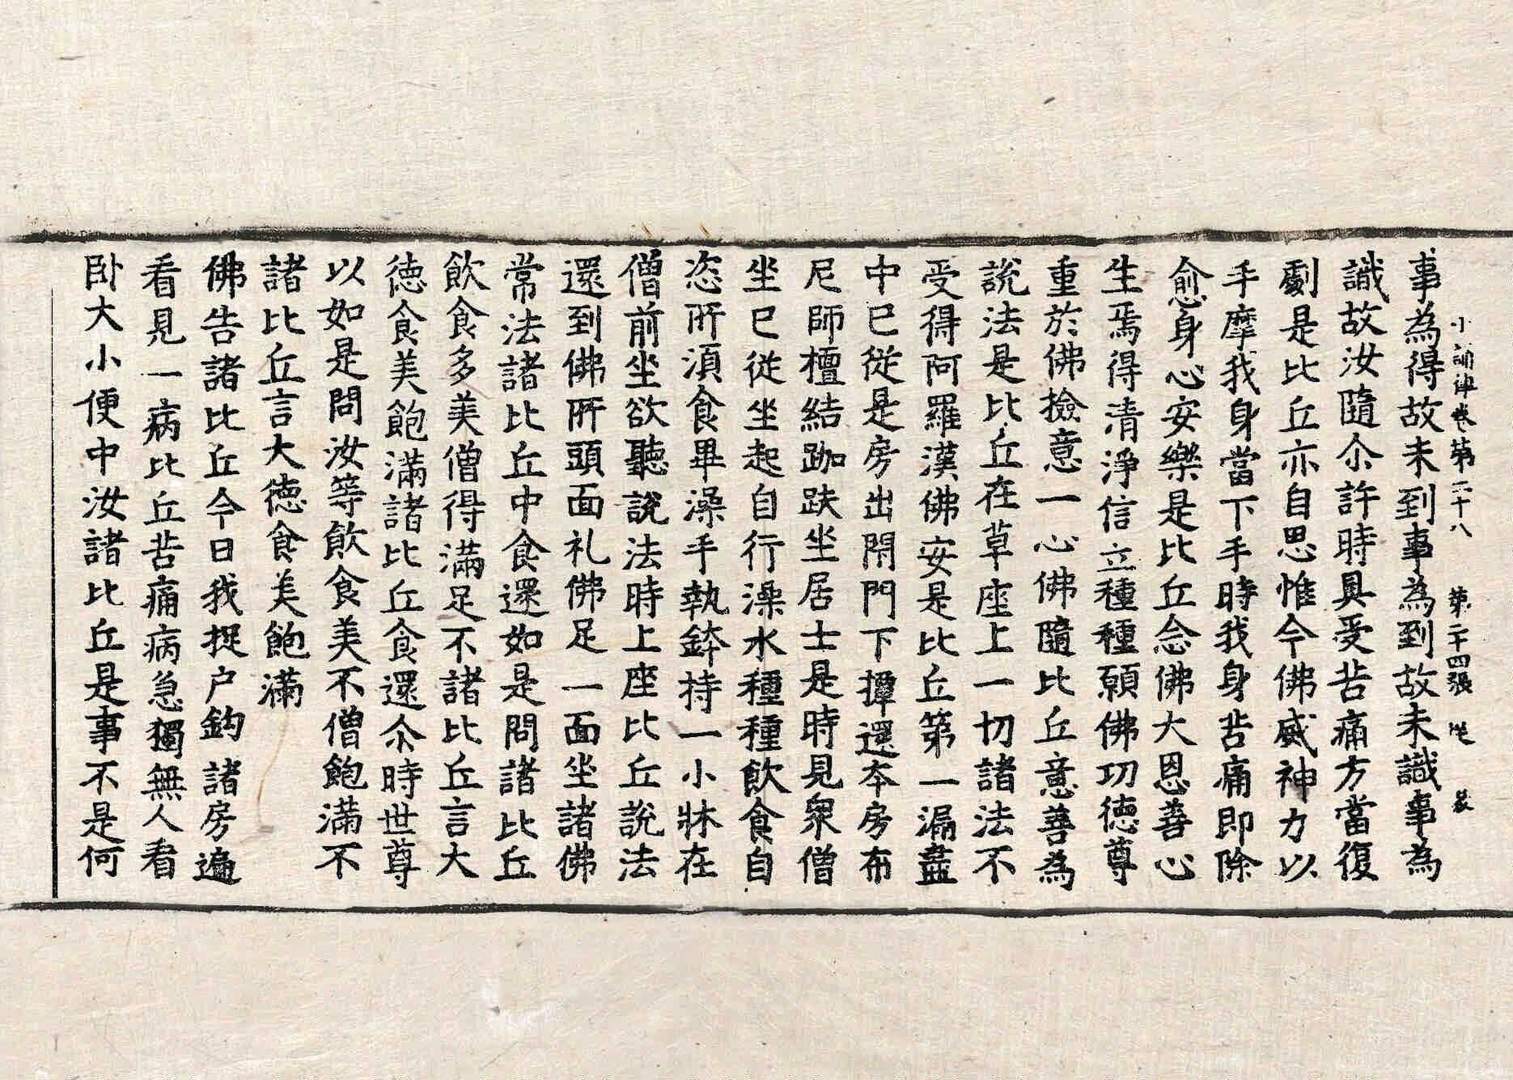 小誦律卷第二十八 第二十四張
事為得故未到事為到故未識事為
識故汝隨尒許時具受苦痛方當復
劇是比丘亦自思惟今佛威神力以
手摩我身當下手時我身苦痛即除
愈身心安樂是比丘念佛大恩善心
生焉得清淨信立種種願佛功德尊
重於佛撿意一心佛隨比丘意善為
說法是比丘在草座上一切諸法不
受得阿羅漢佛安是比丘第一漏盡
中已從是房出閇門下撢還本房布
尼師檀結跏趺坐居士是時見衆僧
坐已從坐起自行澡水種種飲食自
恣所湏食畢澡手執鉢持一小牀在
僧前坐欲聽說法時上座比丘說法
還到佛所頭面礼佛足一面坐諸佛
常法諸比丘中食還如是問諸比丘
飲食多美僧得滿足不諸比丘言大
德食美飽滿諸比丘食還尒時世尊
以如是問汝等飲食美不僧飽滿不
諸比丘言大德食美飽滿
佛告諸比丘今日我捉户鈎諸房遍
看見一病比丘苦痛病急獨無人看
卧大小便中汝諸比丘是事不是何